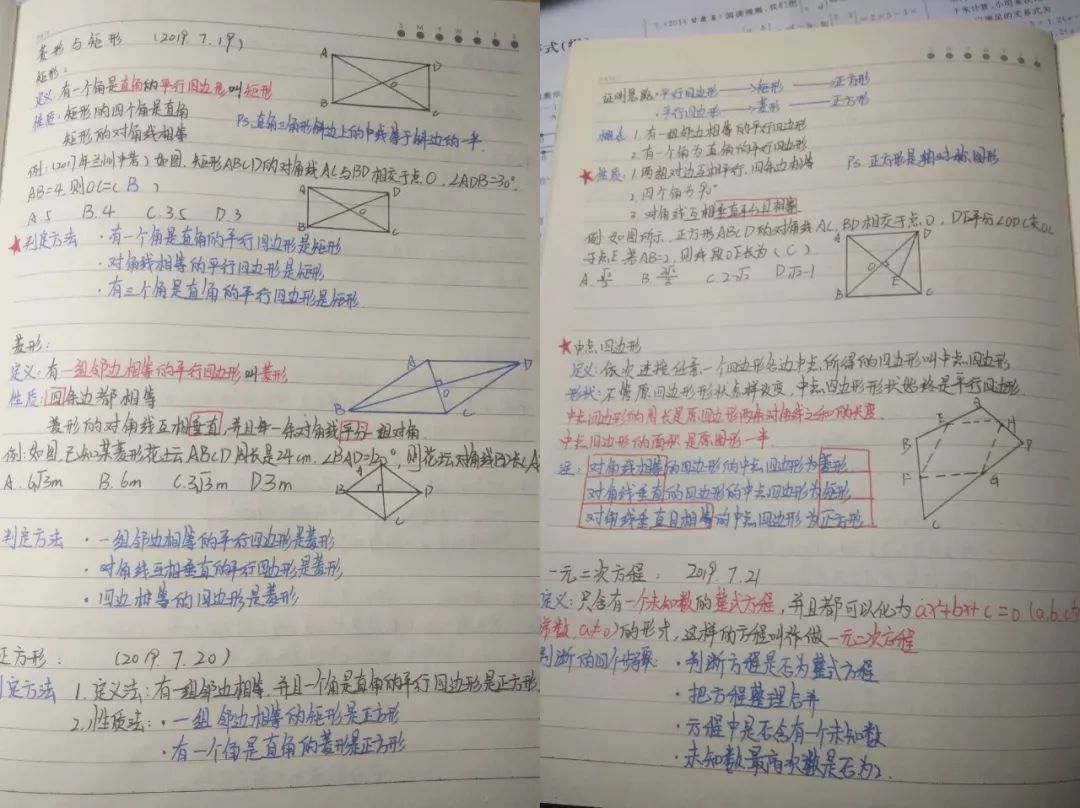 菱形与矩形 (2019.7.19)
矩形:
定义:有一个角是直角的平行四边形叫矩形
性质:矩形的四个角是直角
矩形的对角线相等
Ps.直角三角形斜边上的中线等于斜边的一半.
例:(2017年兰州中考)如图,矩形ABCD的对角线AC与BD相交于点O,∠ADB=30°,
AB=4,则OC=( B )
A.5 B.4 C.3.5 D.3
★判定方法 ·有一个角是直角的平行四边形是矩形
·对角线相等的平行四边形是矩形
·有三个角是直角的平行四边形是矩形
菱形:
定义:有一组邻边相等的平行四边形叫菱形
性质:四条边都相等
菱形的对角线互相垂直,并且每一条对角线平分一组对角.
例:如图,已知某菱形花坛ABCD周长是24cm,∠BAD=120°,则花坛对角线BD长(A
A.6√3m B.6m C.3√3m D.3m
判定方法 ·一组邻边相等的平行四边形是菱形
·对角线互相垂直的平行四边形是菱形
·四边相等的四边形是菱形
正方形: (2019.7.20)
定方法 1.定义法:有一组邻边相等,并且一个角是直角的平行四边形是正方形
2.性质法:·一组邻边相等的矩形是正方形
·有一个角是直角的菱形是正方形
证明思路·平行四边形→矩形→正方形
·平行四边形→菱形→正方形
概念 1.有一组邻边相等的平行四边形
2.有一个角为直角的平行四边形
★性质:1.两组对边互相平行,四条边相等
Ps.正方形是轴对称图形
2.四个角为90°
3.对角线互相垂直平分且相等
例:如图所示,正方形ABCD的对角线AC,BD相交于点O,DE平分∠ODC交OC
于点E,若AB=2,则线段OE长为(C)
B. C.2-√2 D.√2-1
★中点四边形
定义:依次连接任意一个四边形各边中点所得的四边形叫中点四边形
形状:不管原四边形形状怎样改变,中点四边形形状始终是平行四边形.
中点四边形的周长是原四边形两条对角线之和的长度.
中点四边形的面积是原图形一半.
注:对角线相等的四边形的中点四边形为菱形
对角线垂直的四边形的中点四边形为矩形
对角线垂直且相等的中点四边形为正方形
一元二次方程: 2019.7.21
定义:只含有一个未知数的整式方程,并且都可以化为ax²+bx+c=0(a,b,c为
常数,a≠0)的形式,这样的方程叫作做一元二次方程
判断的四个步骤:·判断方程是否为整式方程
·把方程整理合并
·方程中是否含有一个未知数
·未知数最高次数是否为2.